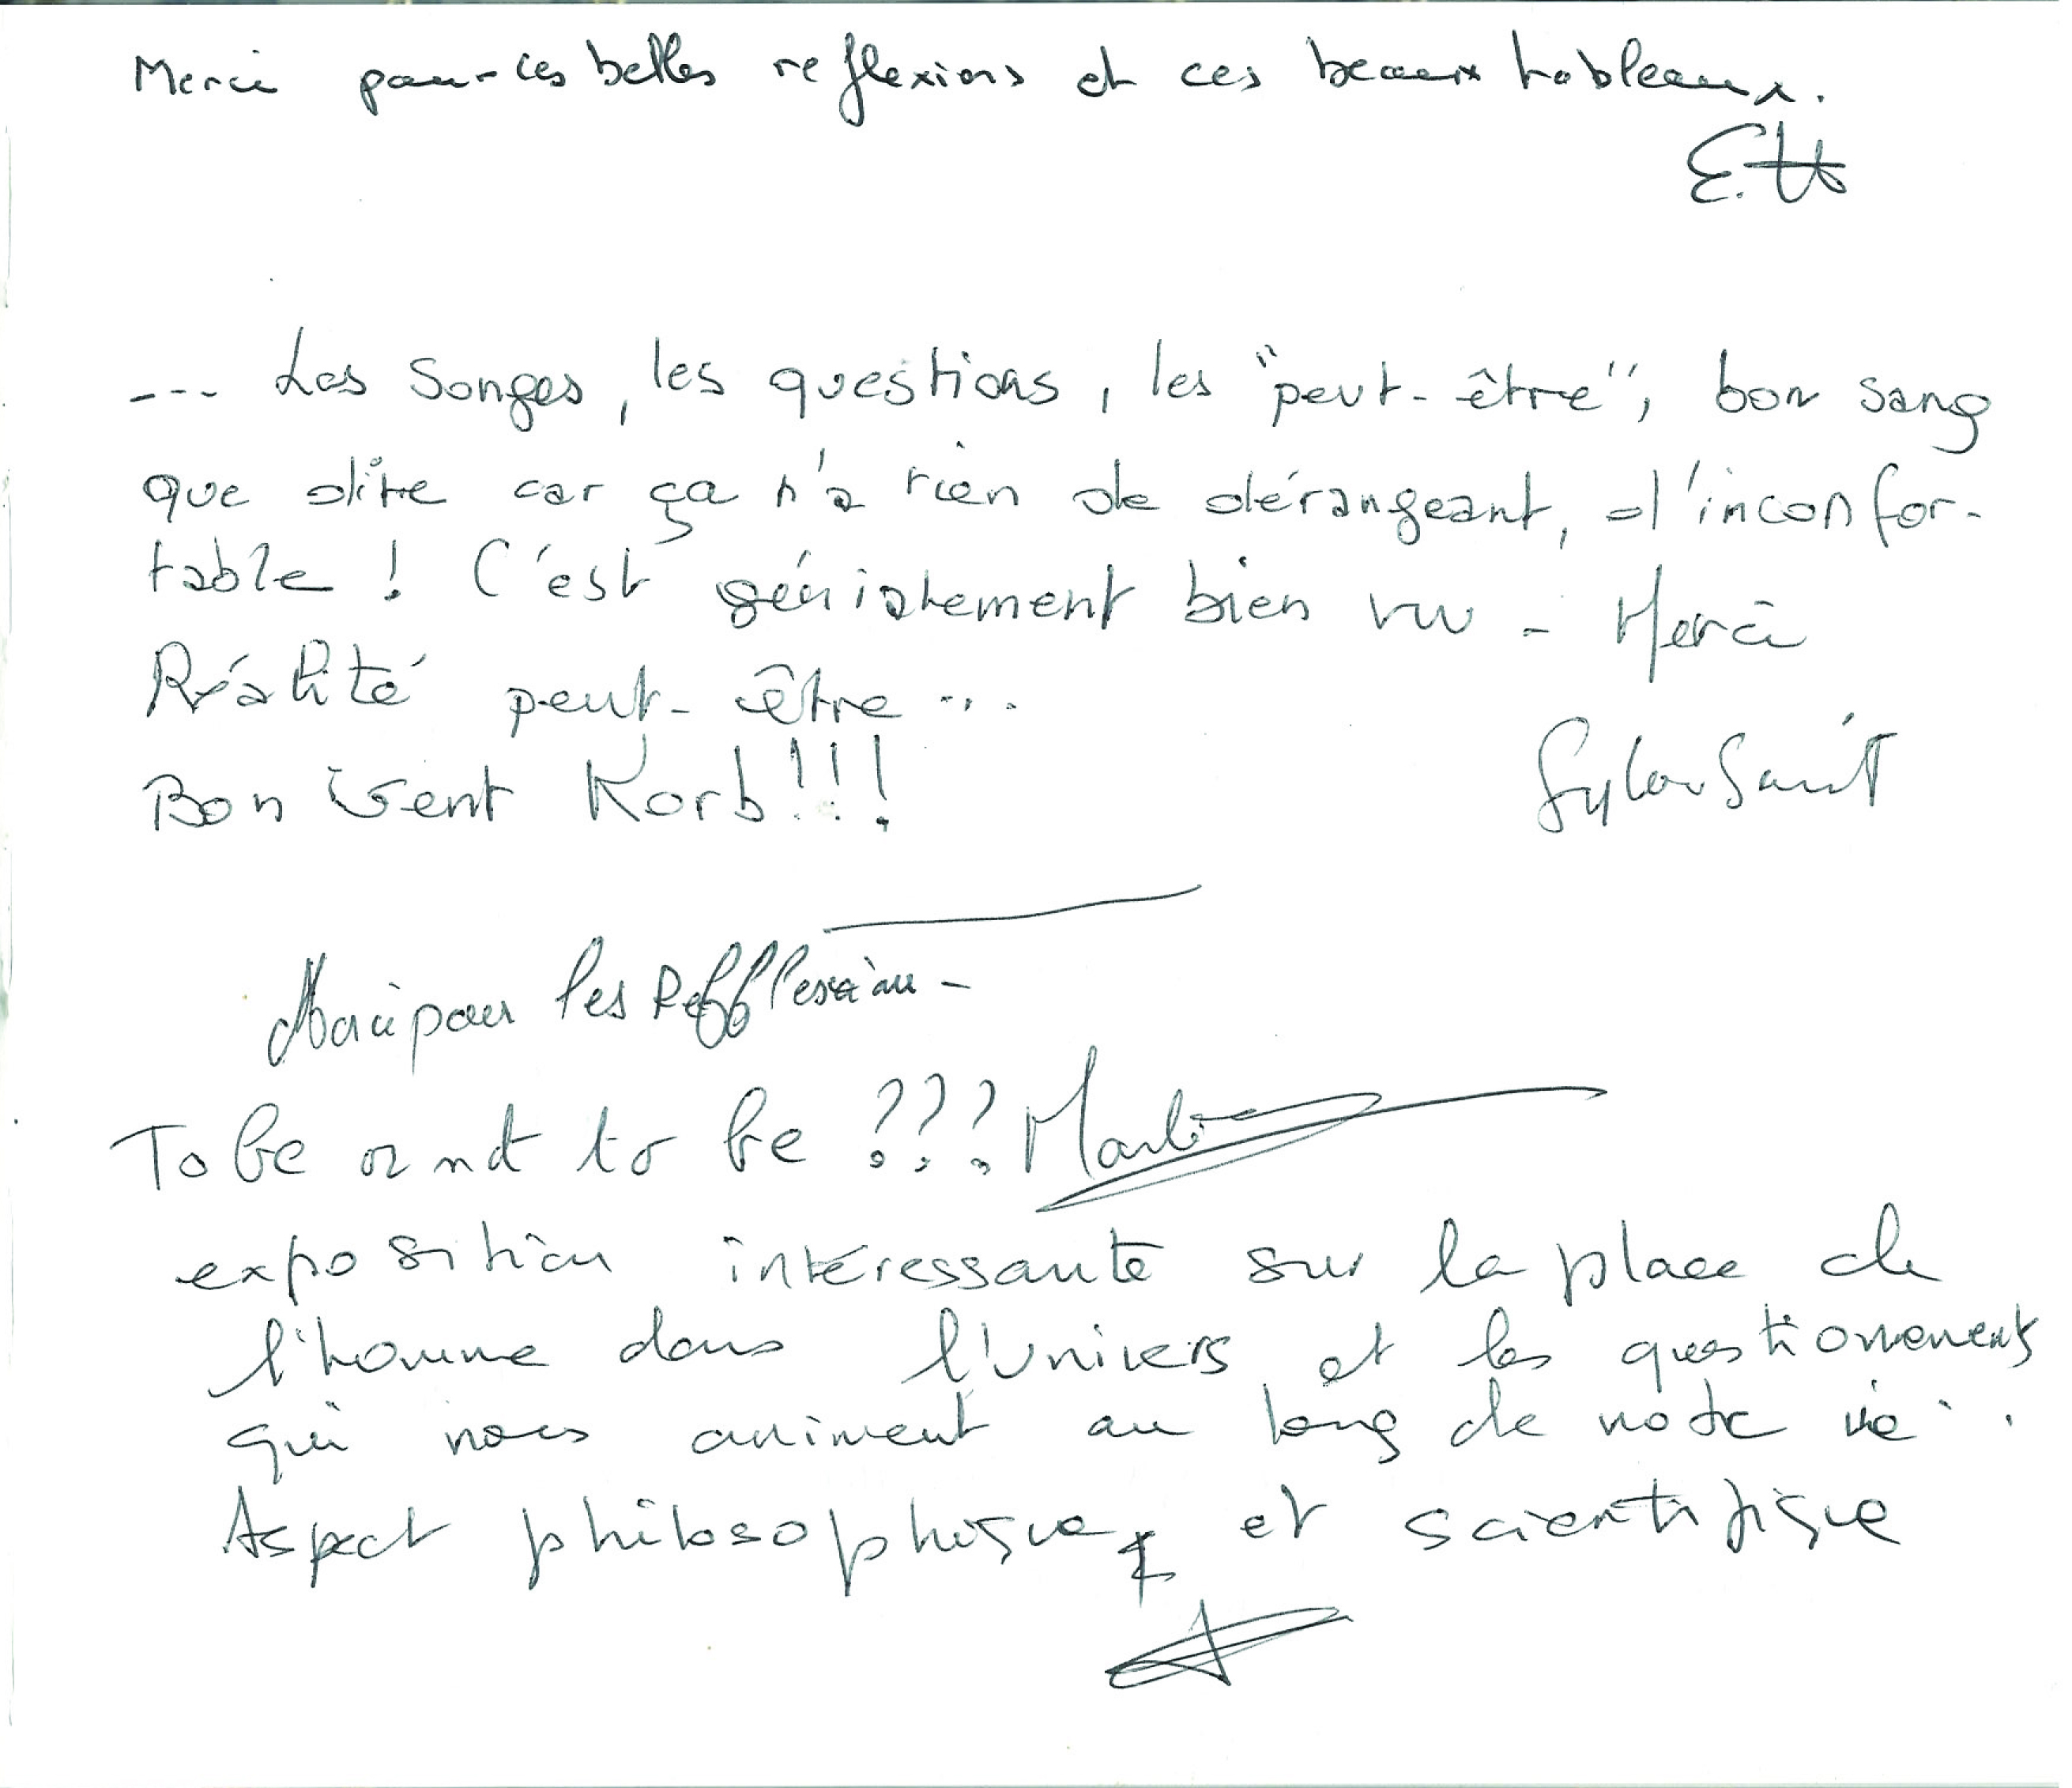 Merci pour ces belles reflexions et ces beaux tableaux.
E.H
--- Les Songes, les questions, les "peut-être", bon sang
que dire car ça n'a rien de dérangeant, d'inconfor-
table ! C'est génialement bien vu - Merci
Réalité peut-être...
Bon vent Korb!!!
Merci pour les Refflexion -
To be or not to be ???
exposition intéressante sur la place de
l'homme dans l'univers et les questionnements
qui nous animent au long de notre vie.
Aspect philosophique et scientifique